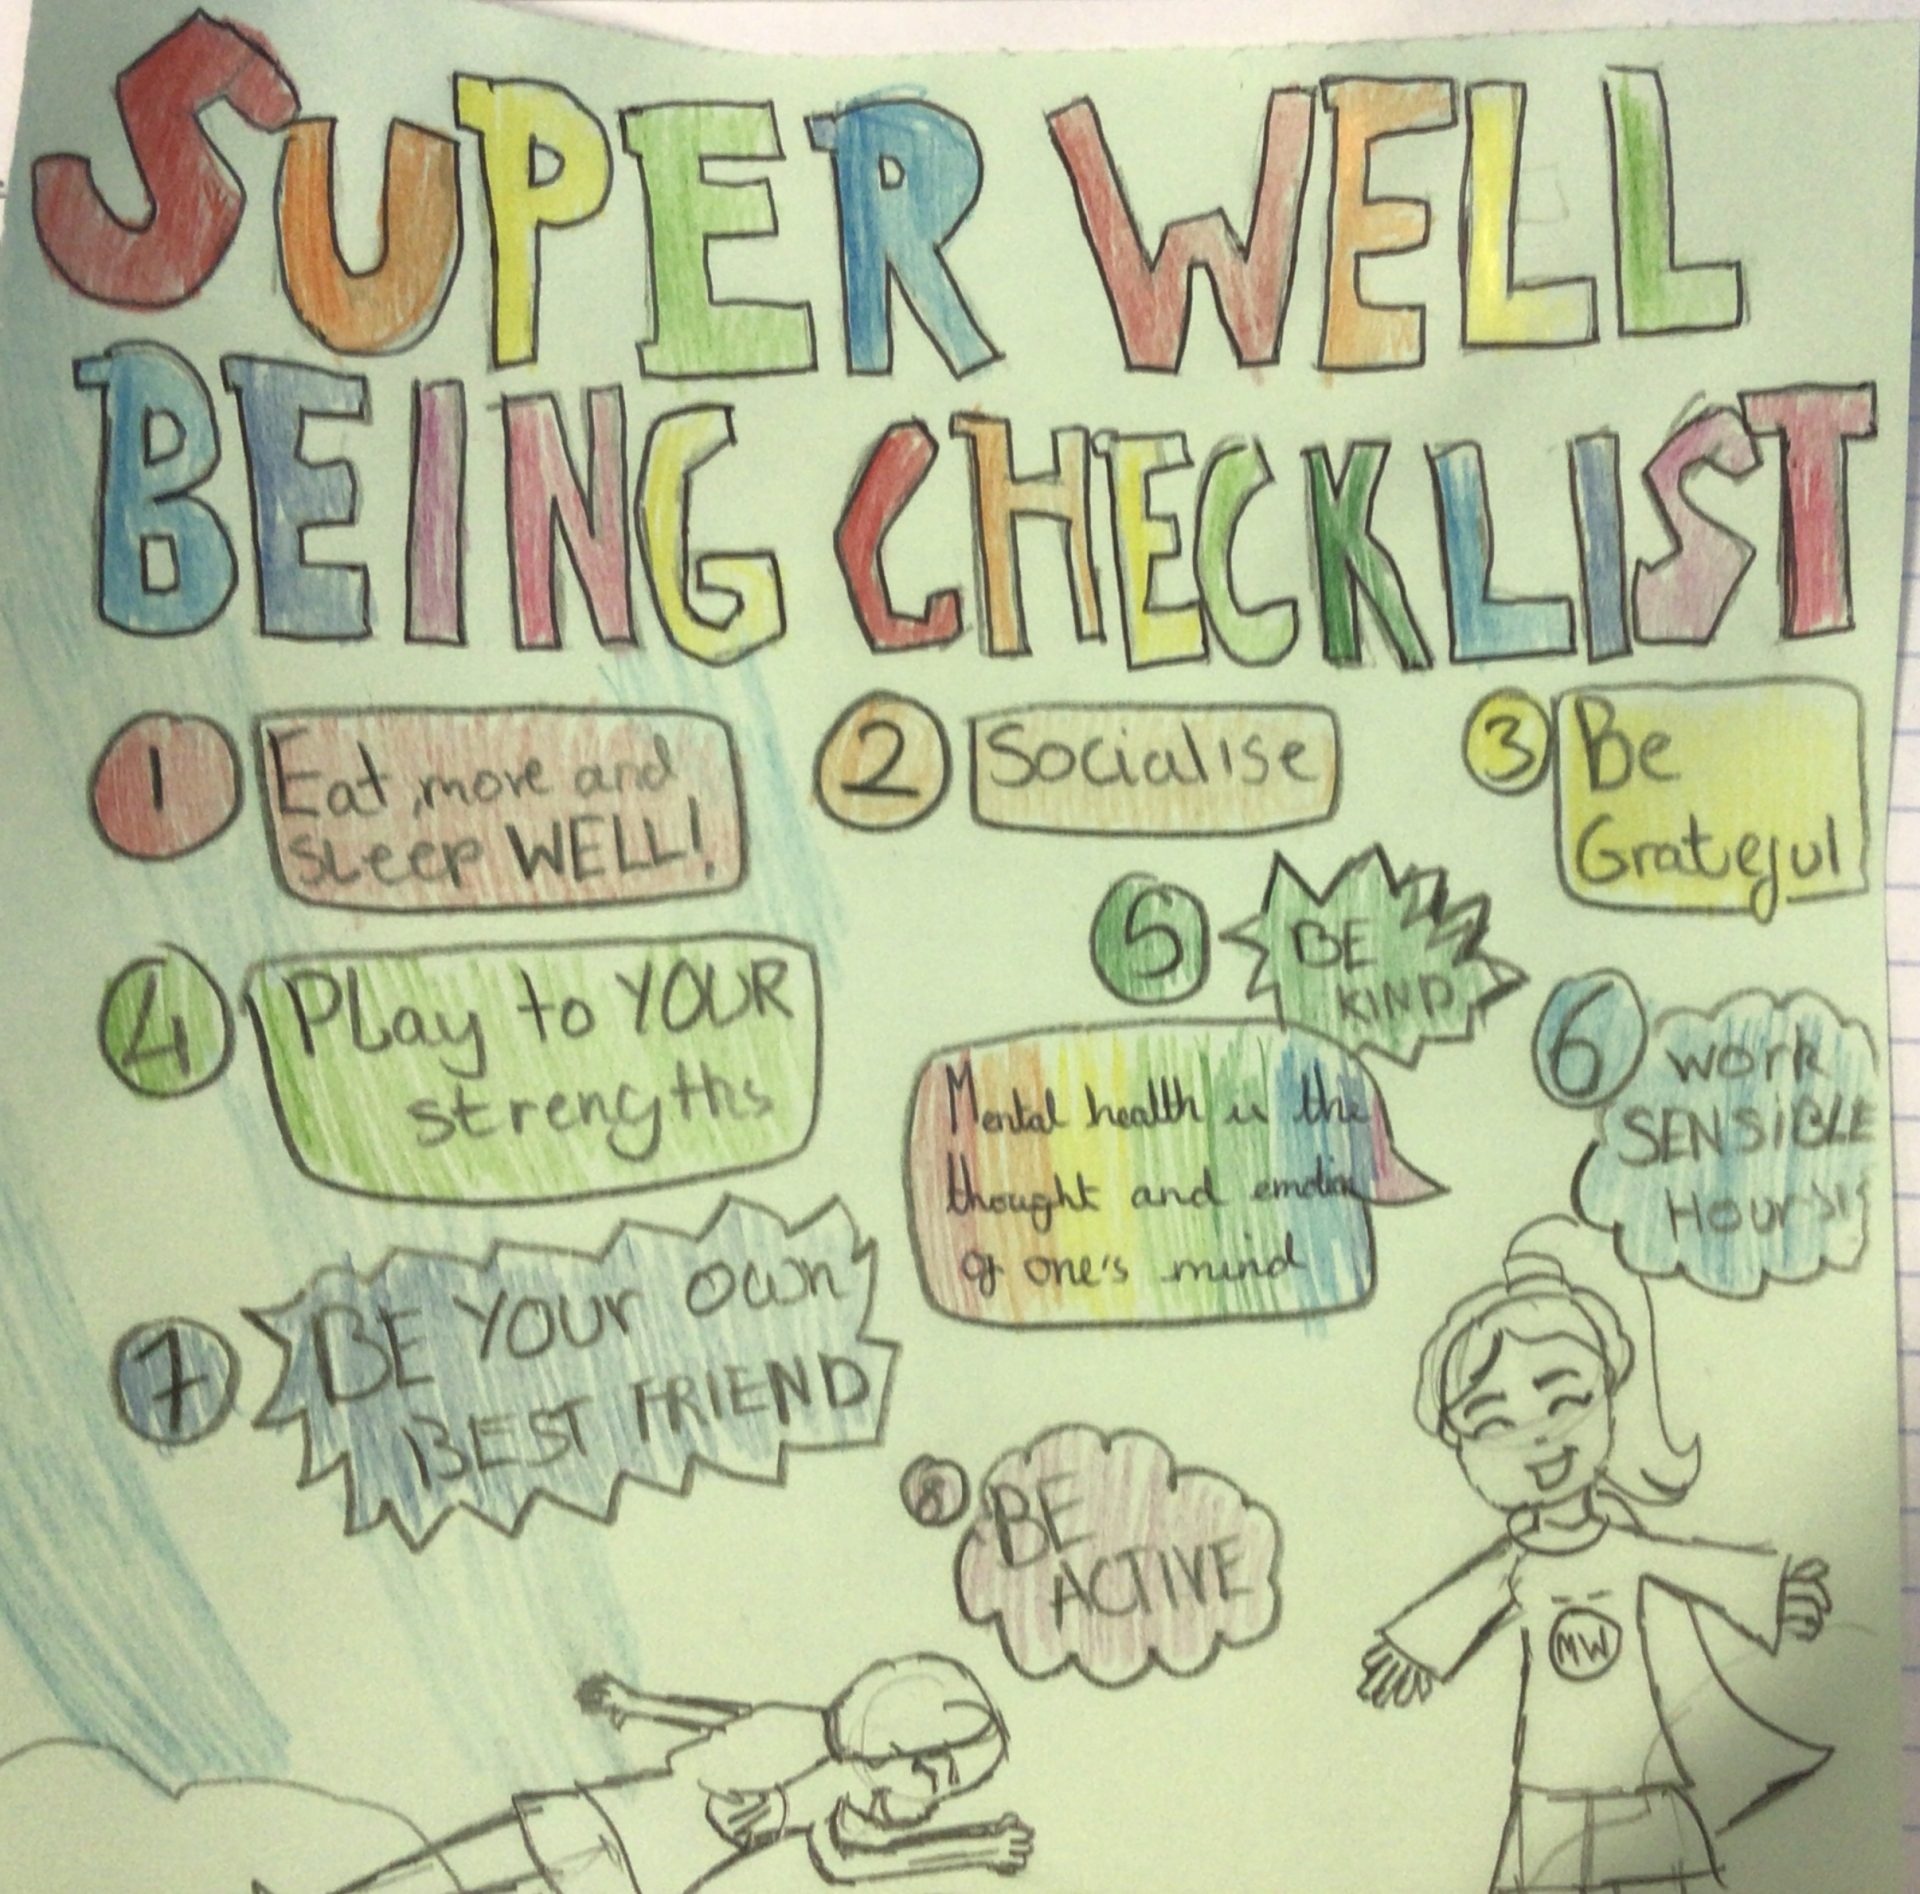 SUPER WELL
BEING CHECKLIST
1 Eat, move and
sleep WELL!
2 Socialise
3 Be
Grateful
4 Play to YOUR
strengths
5 BE
KIND
6 work
SENSiBLE
Hours!
Mental health is the
thought and emotion
of one's mind
7 BE YOUr own
BEST FRIEND
8 BE
ACTIVE
MW